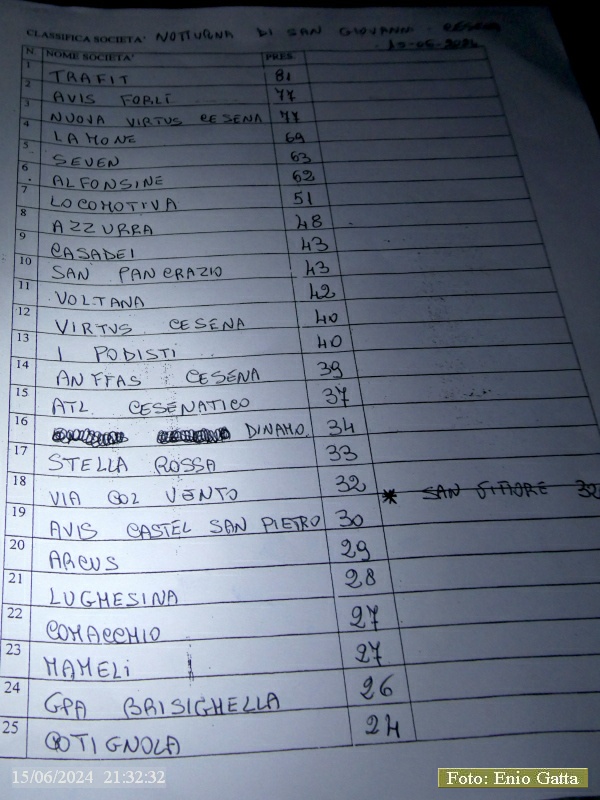 CLASSIFICA SOCIETA' NOTTURNA DI SAN GIOVANNI - CESENA
N. NOME SOCIETA' PRES.
1 TRAFIT 81
2 AVIS FORLI 77
3 NUOVA VIRTUS CESENA 77
4 LAMONE 69
5 SEVEN 63
6 ALFONSINE 62
7 LOCOMOTIVA 51
8 AZZURRA 48
9 CASADEI 43
10 SAN PANCRAZIO 43
11 VOLTANA 42
12 VIRTUS CESENA 40
13 I PODISTI 40
14 ANFFAS CESENA 39
15 ATL CESENATICO 37
16 DINAMO 34
17 STELLA ROSSA 33
18 VIA COL VENTO 32 * SAN 32
19 AVIS CASTEL SAN PIETRO 30
20 ARCUS 29
21 LUGHESINA 28
22 COMACCHIO 27
23 MAMELI 27
24 GPA BRISIGHELLA 26
25 COTIGNOLA 24
15/06/2024 21:32:32
Foto: Enio Gatta